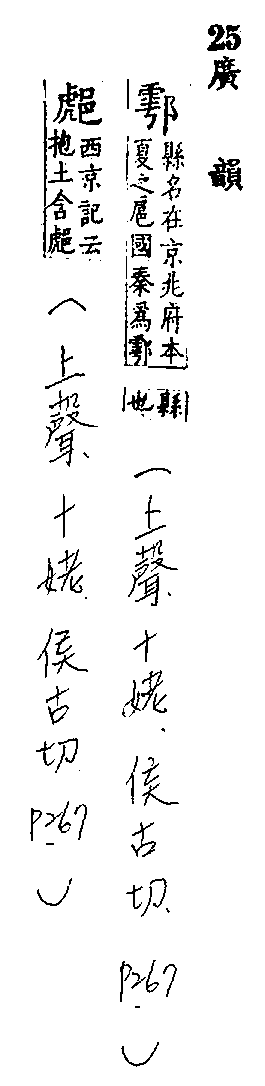 25廣韻
鄠縣名在京兆府本
夏之扈國秦爲鄠
縣
也
(上聲、十姥、侯古切、P267)
西京記云
抱土含
(上聲、十姥、侯古切 P267)